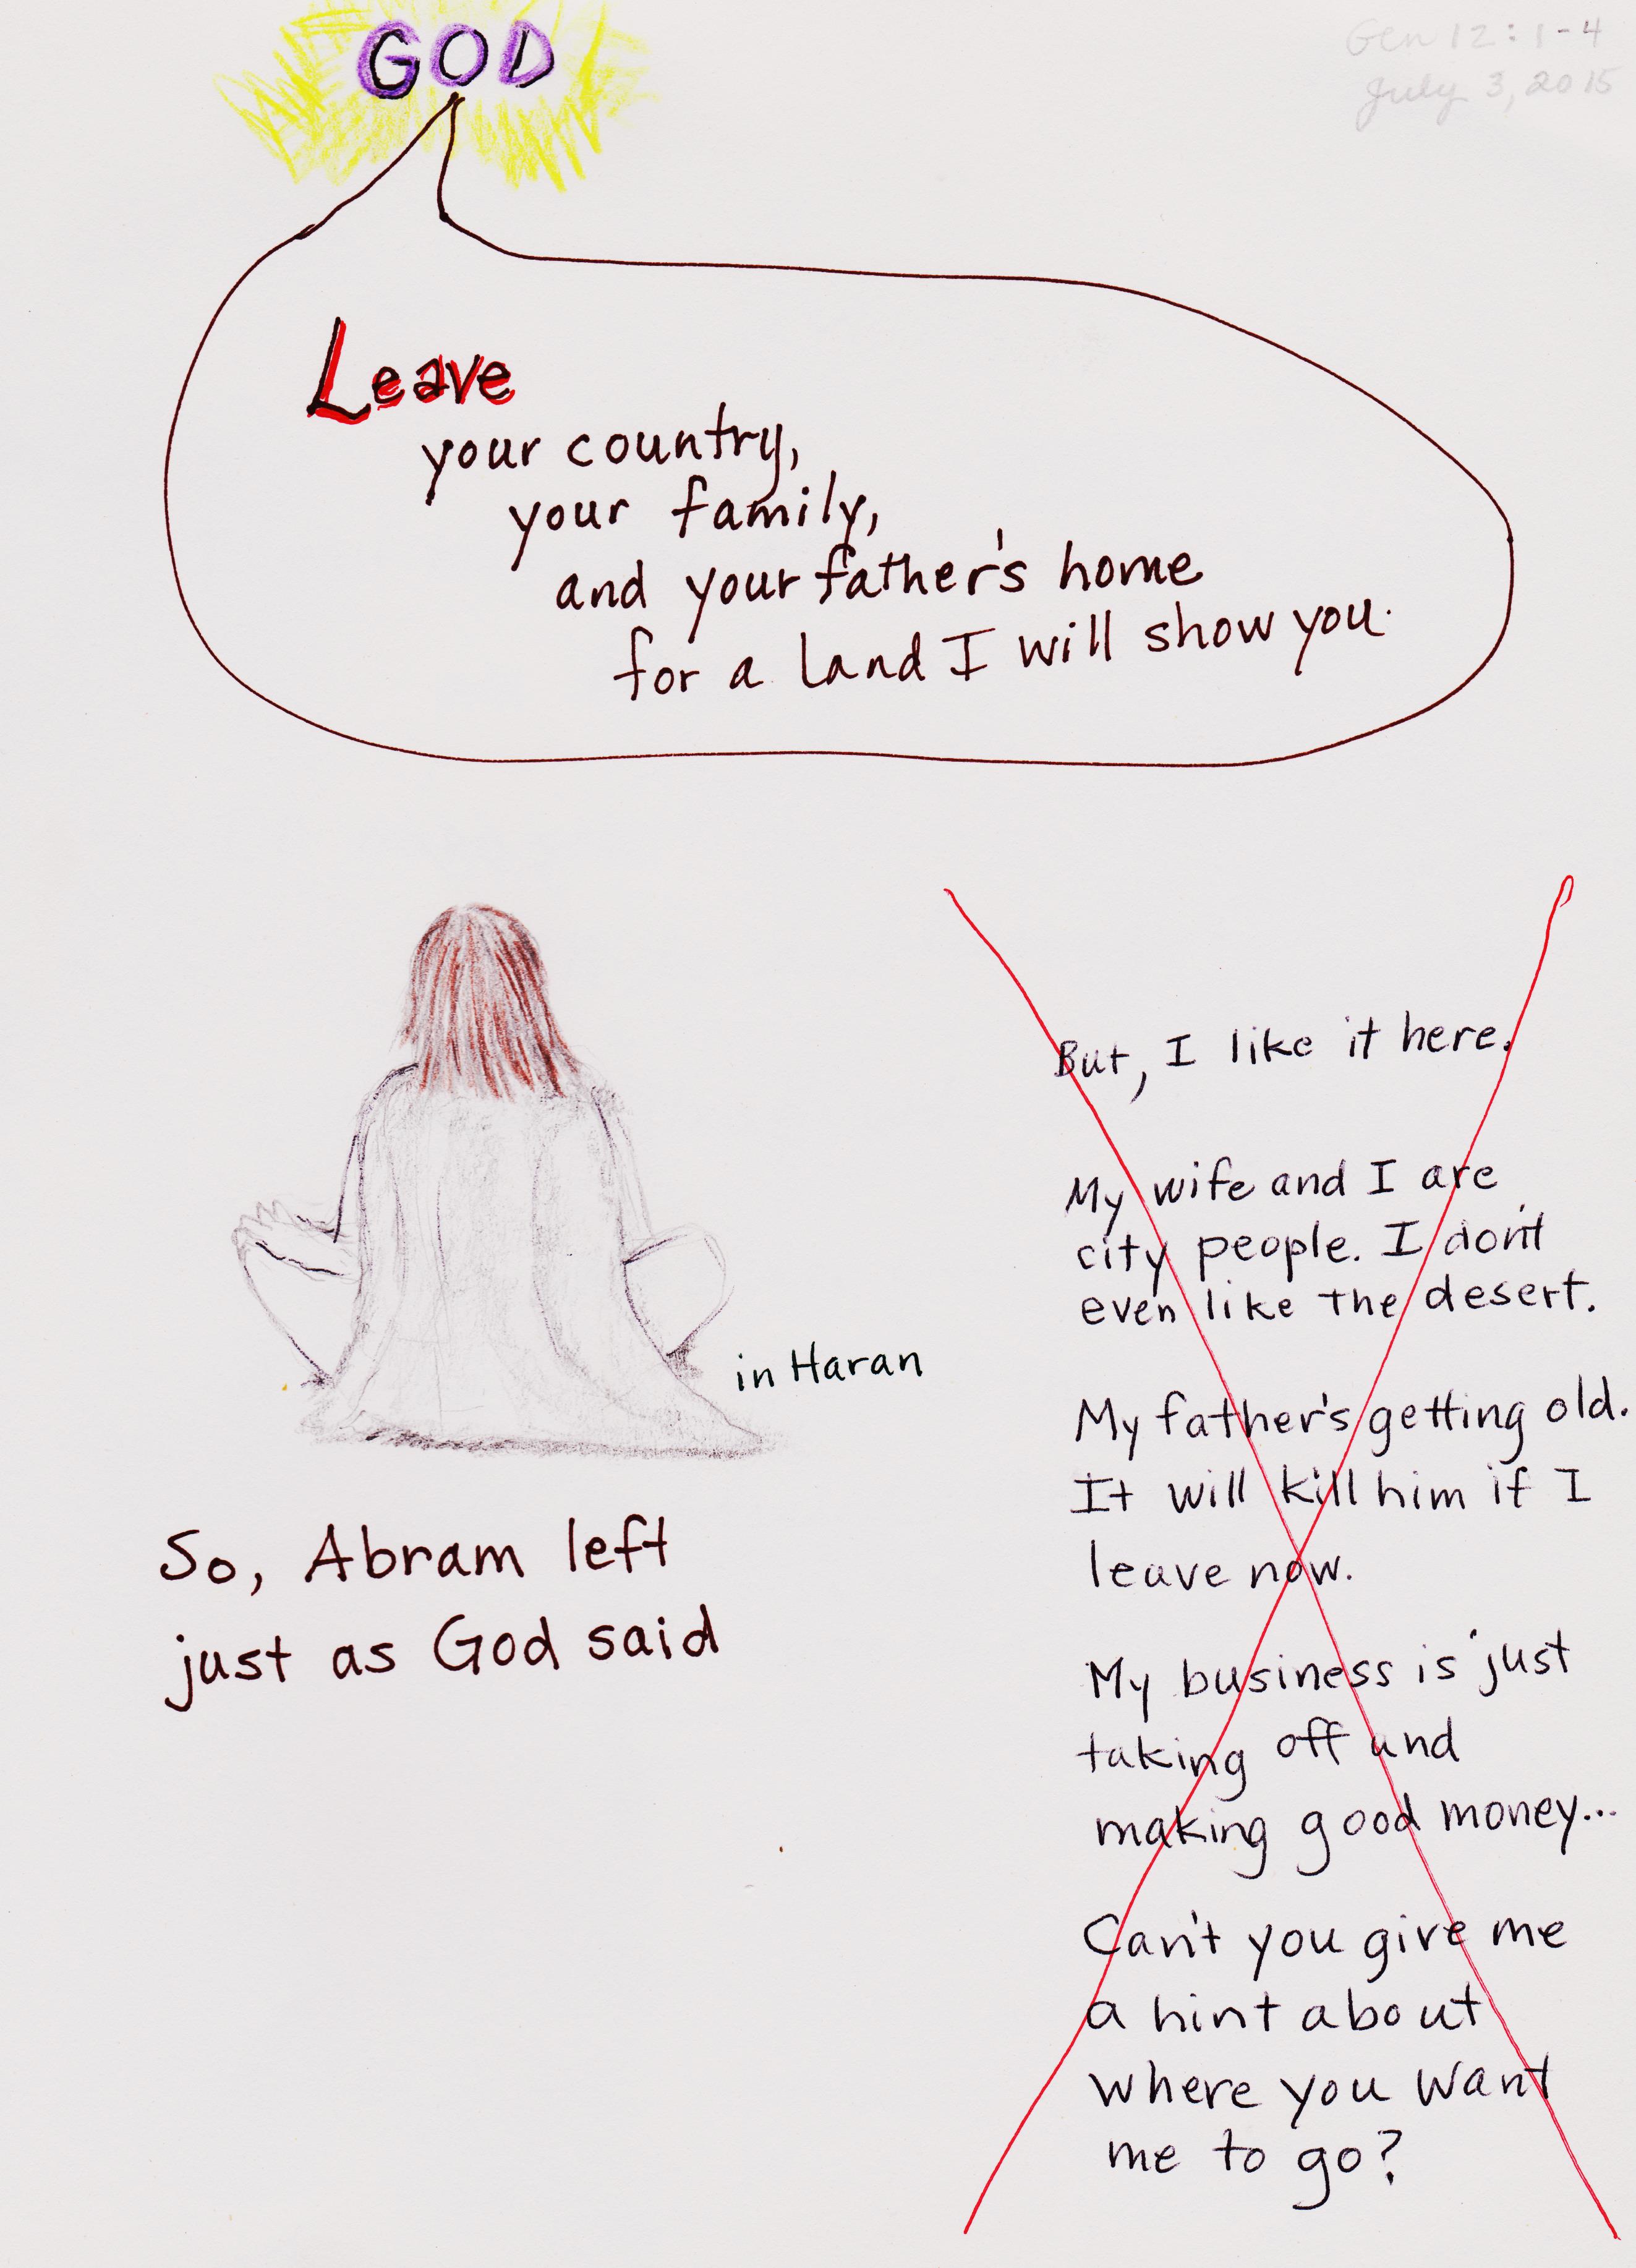 GOD
Gen 12:1-4
July 3, 2015
Leave
your country,
your family,
and your father's home
for a land I will show you.
in Haran
So, Abram left
just as God said
But, I like it here.
My wife and I are
city people. I don't
even like the desert.
My father's getting old.
It will kill him if I
leave now.
My business is just
taking off and
making good money...
Can't you give me
a hint about
where you want
me to go?